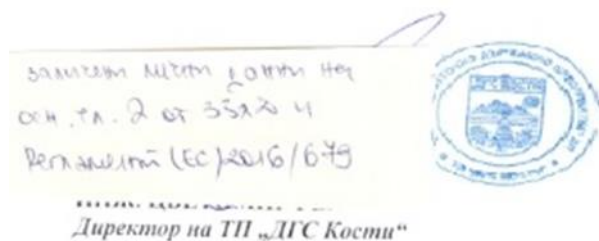 заличени лични данни на
осн. чл. 2 от ЗЗЛД и
Регламент (ЕС) 2016/679
ДГС КОСТИ
Директор на ТП „ДГС Кости“